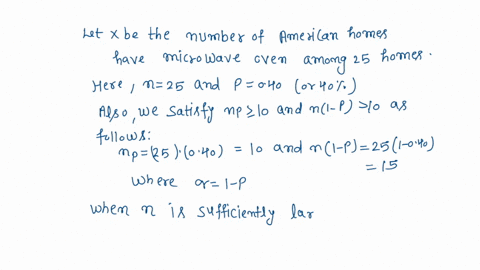 Let X be the number of American homes
have microwave oven among 25 homes.
Here, n=25 and P=0.40 (or 40%)
Also, we satisfy np≥10 and n(1-P)>10 as
follows:
np=(25)·(0.40) = 10 and n(1-P)=25(1-0.40)
=15
where q=1-P
when n is sufficiently lar